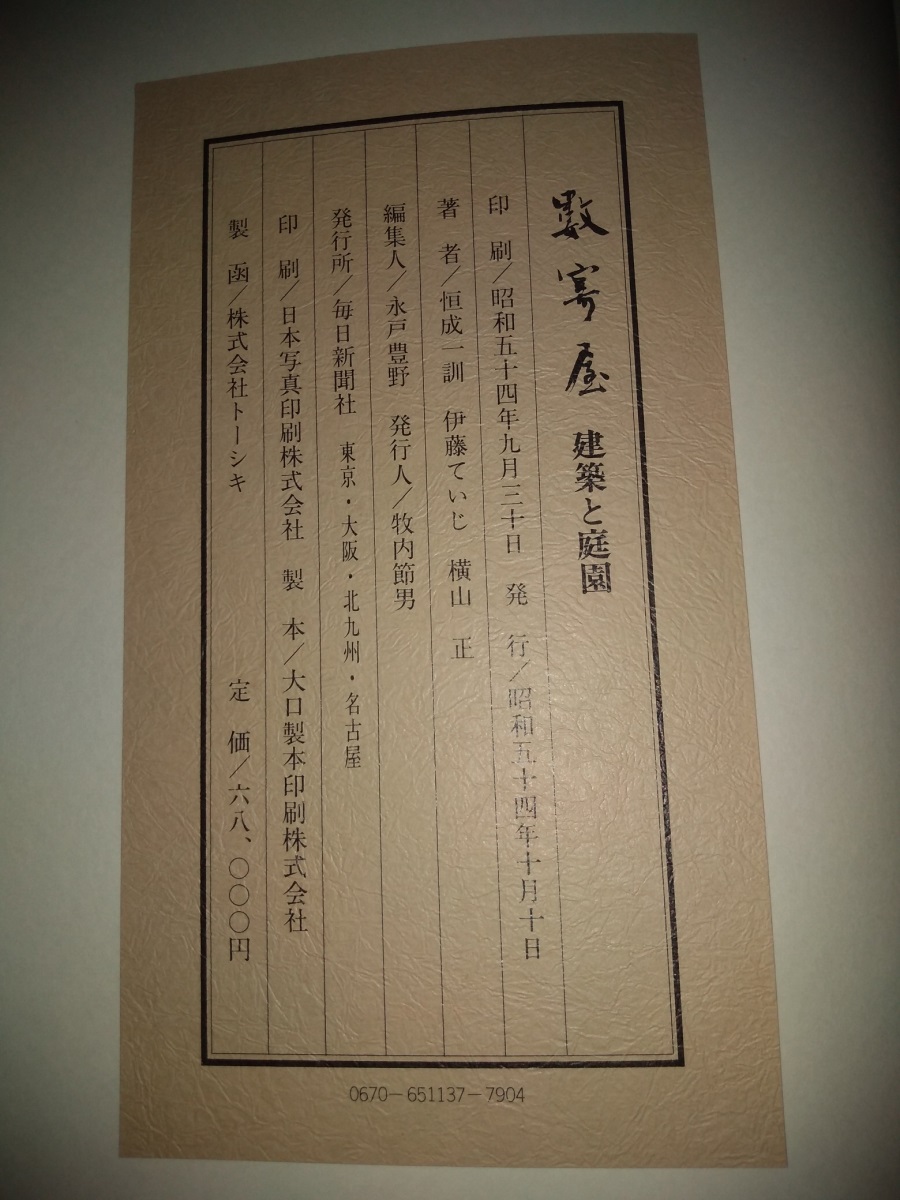 数寄屋 建築と庭園
印 刷/昭和五十四年九月三十日 発 行/昭和五十四年十月十日
著 者/恒成一訓 伊藤ていじ 横山 正
編集人/永戸豊野 発行人/牧内節男
発行所/毎日新聞社 東京・大阪・北九州・名古屋
印 刷/日本写真印刷株式会社 製 本/大口製本印刷株式会社
製 函/株式会社トーシキ 定 価/六八、〇〇〇円
0670-651137-7904